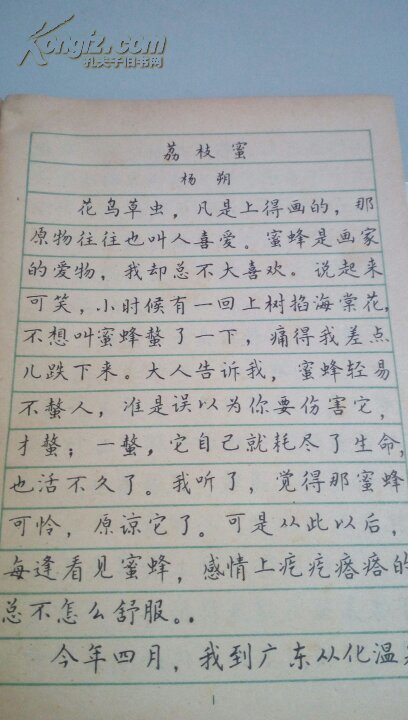 Kongfz.com
孔夫子旧书网
荔枝蜜
杨朔
花鸟草虫，凡是上得画的，那
原物往往也叫人喜爱。蜜蜂是画家
的爱物，我却总不大喜欢。说起来
可笑，小时候有一回上树掐海棠花，
不想叫蜜蜂螫了一下，痛得我差点
儿跌下来。大人告诉我，蜜蜂轻易
不螫人，准是误以为你要伤害它，
才螫；一螫，它自己就耗尽了生命，
也活不久了。我听了，觉得那蜜蜂
可怜，原谅它了。可是从此以后，
每逢看见蜜蜂，感情上疙疙瘩瘩的
总不怎么舒服。。
今年四月，我到广东从化温
1